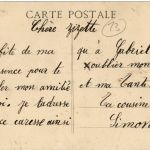 CARTE POSTALE
Chère Zizette
fite de ma
sence pour te
er mon amitié
is je t'adresse
ce caresse ainsi
qu'à Gabriel
oublier mon
et ma Tante
Ta cousine
Simone